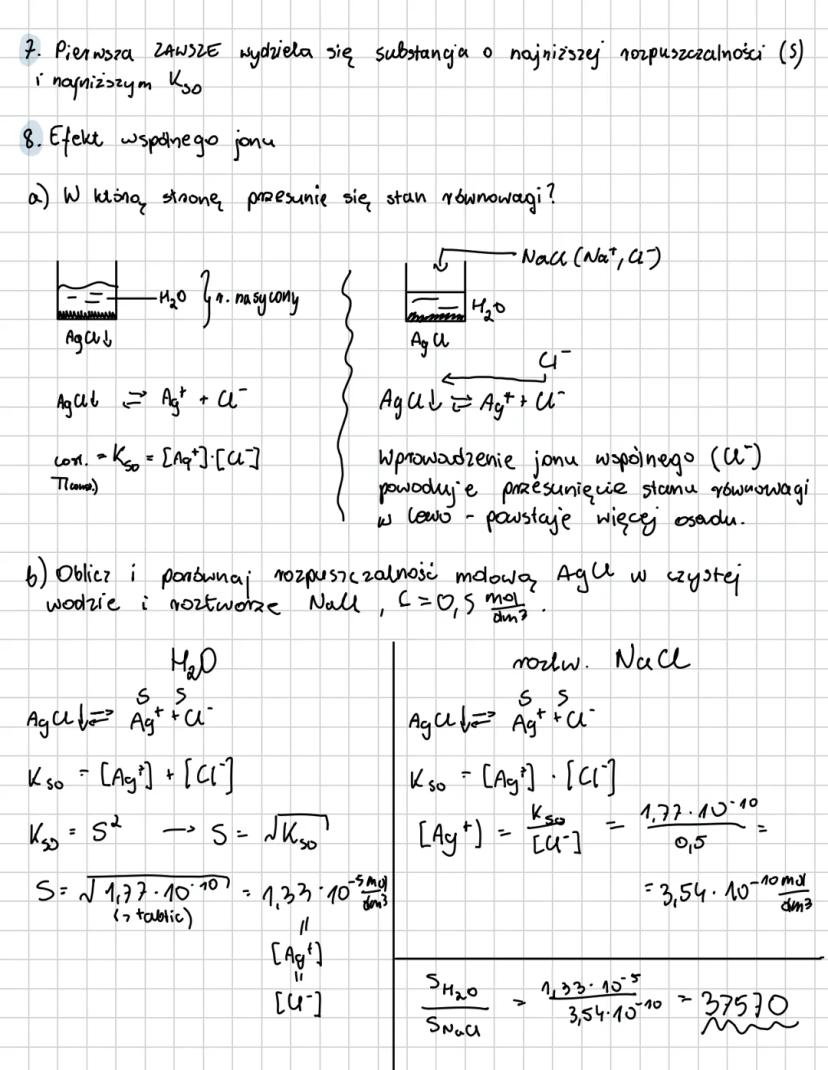 7. Pierwsza ZAWSZE wydziela się substancja o najniższej rozpuszczalności (S)
i najniższym Kso
8. Efekt wspólnego jonu
a) W którą stronę przesunie się stan równowagi?
H₂O } r. nasycony
AgCl↓
AgCl↓ ⇌ Ag⁺ + Cl⁻
const. = Kso = [Ag⁺]·[Cl⁻]
NaCl (Na⁺, Cl⁻)
H₂O
AgCl
Cl⁻
AgCl↓ ⇌ Ag⁺ + Cl⁻
Wprowadzenie jonu wspólnego (Cl⁻)
powoduje przesunięcie stanu równowagi
w lewo - powstaje więcej osadu.
b) Oblicz i porównaj rozpuszczalność molową AgCl w czystej
wodzie i roztworze NaCl, C = 0,5 mol/dm³.
H₂O
S S
AgCl↓ ⇌ Ag⁺ + Cl⁻
Kso = [Ag⁺] + [Cl⁻]
Kso = S² → S = √Kso
S = √1,77·10⁻¹⁰ = 1,33·10⁻⁵ mol/dm³
(z tablic)
=
[Ag⁺]
=
[Cl⁻]
roztw. NaCl
S S
AgCl↓ ⇌ Ag⁺ + Cl⁻
Kso = [Ag⁺] · [Cl⁻]
[Ag⁺) = Kso/[Cl⁻] = 1,77·10⁻¹⁰/0,5 =
= 3,54·10⁻¹⁰ mol/dm³
S H₂O/S NaCl = 1,33·10⁻⁵/3,54·10⁻¹⁰ = 37570